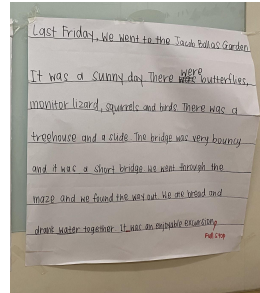 Last Friday, we went to the Jacob Ballas Garden
were
It was a sunny day There were butterflies,
monitor lizard, squirrels and birds There was a
treehouse and a slide The bridge was very bouncy
and it was a short bridge We went through the
maze and we found the way out We ate bread and
drank water together It was an enjoyable excursion.
Full Stop